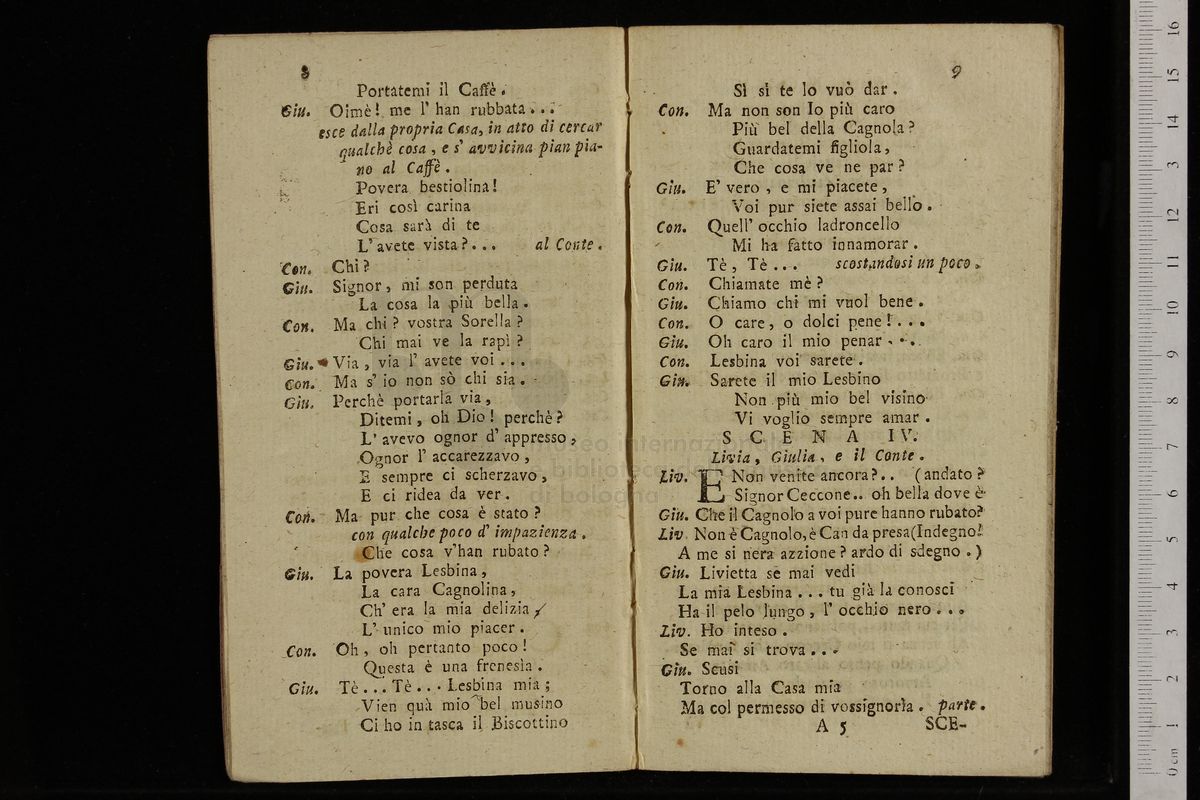 8
Portatemi il Caffè.
Giu. Oimè! me l' han rubbata...
esce dalla propria Casa, in atto di cercar
qualchè cosa, e s' avvicina pian pia-
no al Caffè.
Povera bestiolina!
Eri così carina
Cosa sarà di te
L' avete vista?... al Conte.
Con. Chi?
Giu. Signor, mi son perduta
La cosa la più bella.
Con. Ma chi? vostra Sorella?
Chi mai ve la rapì?
Giu. Via, via l' avete voi...
Con. Ma s' io non sò chi sia.
Giu. Perchè portarla via,
Ditemi, oh Dio! perchè?
L' avevo ognor d' appresso,
Ognor l' accarezzavo,
E sempre ci scherzavo,
E ci ridea da ver.
Con. Ma pur che cosa è stato?
con qualche poco d' impazienza.
Che cosa v'han rubato?
Giu. La povera Lesbina,
La cara Cagnolina,
Ch' era la mia delizia,
L' unico mio piacer.
Con. Oh, oh pertanto poco!
Questa è una frenesìa.
Giu. Tè... Tè... Lesbina mia;
Vien quà mio bel musino
Ci ho in tasca il Biscottino
9
Sì sì te lo vuò dar.
Con. Ma non son Io più caro
Più bel della Cagnola?
Guardatemi figliola,
Che cosa ve ne par?
Giu. E' vero, e mi piacete,
Voi pur siete assai bello.
Con. Quell' occhio ladroncello
Mi ha fatto innamorar.
Giu. Tè, Tè... scostandosi un poco.
Con. Chiamate mè?
Giu. Chiamo chi mi vuol bene.
Con. O care, o dolci pene!...
Giu. Oh caro il mio penar...
Con. Lesbina voi sarete.
Giu. Sarete il mio Lesbino
Non più mio bel visino
Vi voglio sempre amar.
SCENA IV.
Livia, Giulia, e il Conte.
Liv. E Non venite ancora?.. (andato?
Signor Ceccone.. oh bella dove è
Giu. Che il Cagnolo a voi pure hanno rubato?
Liv. Non è Cagnolo, è Can da presa (Indegno!
A me si nera azzione? ardo di sdegno.)
Giu. Livietta se mai vedi
La mia Lesbina... tu già la conosci
Ha il pelo lungo, l' occhio nero...
Liv. Ho inteso.
Se mai si trova...
Giu. Scusi
Torno alla Casa mia
Ma col permesso di vossignorìa. parte.
A 5 SCE-
museo internazionale
e biblioteca della musica
di bologna
0 cm 1 2 3 4 5 6 7 8 9 10 11 12 13 14 15 16